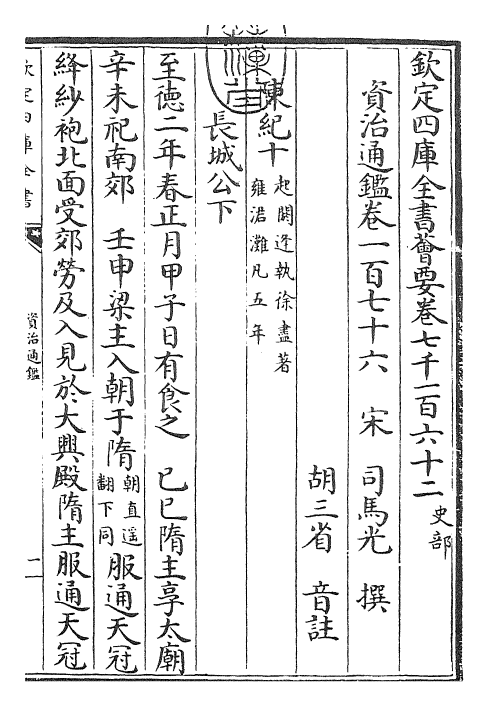 欽定四庫全書薈要卷七千一百六十二 史部
資治通鑑卷一百七十六 宋 司馬光 撰
胡三省 音註
陳紀十 起閼逢執徐盡著雍涒灘凡五年
長城公下
至德二年春正月甲子日有食之 己巳隋主享太廟
辛未祀南郊 壬申梁主入朝于隋 朝直遥翻下同 服通天冠
絳紗袍北面受郊勞及入見於大興殿隋主服通天冠
欽定四庫全書
資治通鑑
一